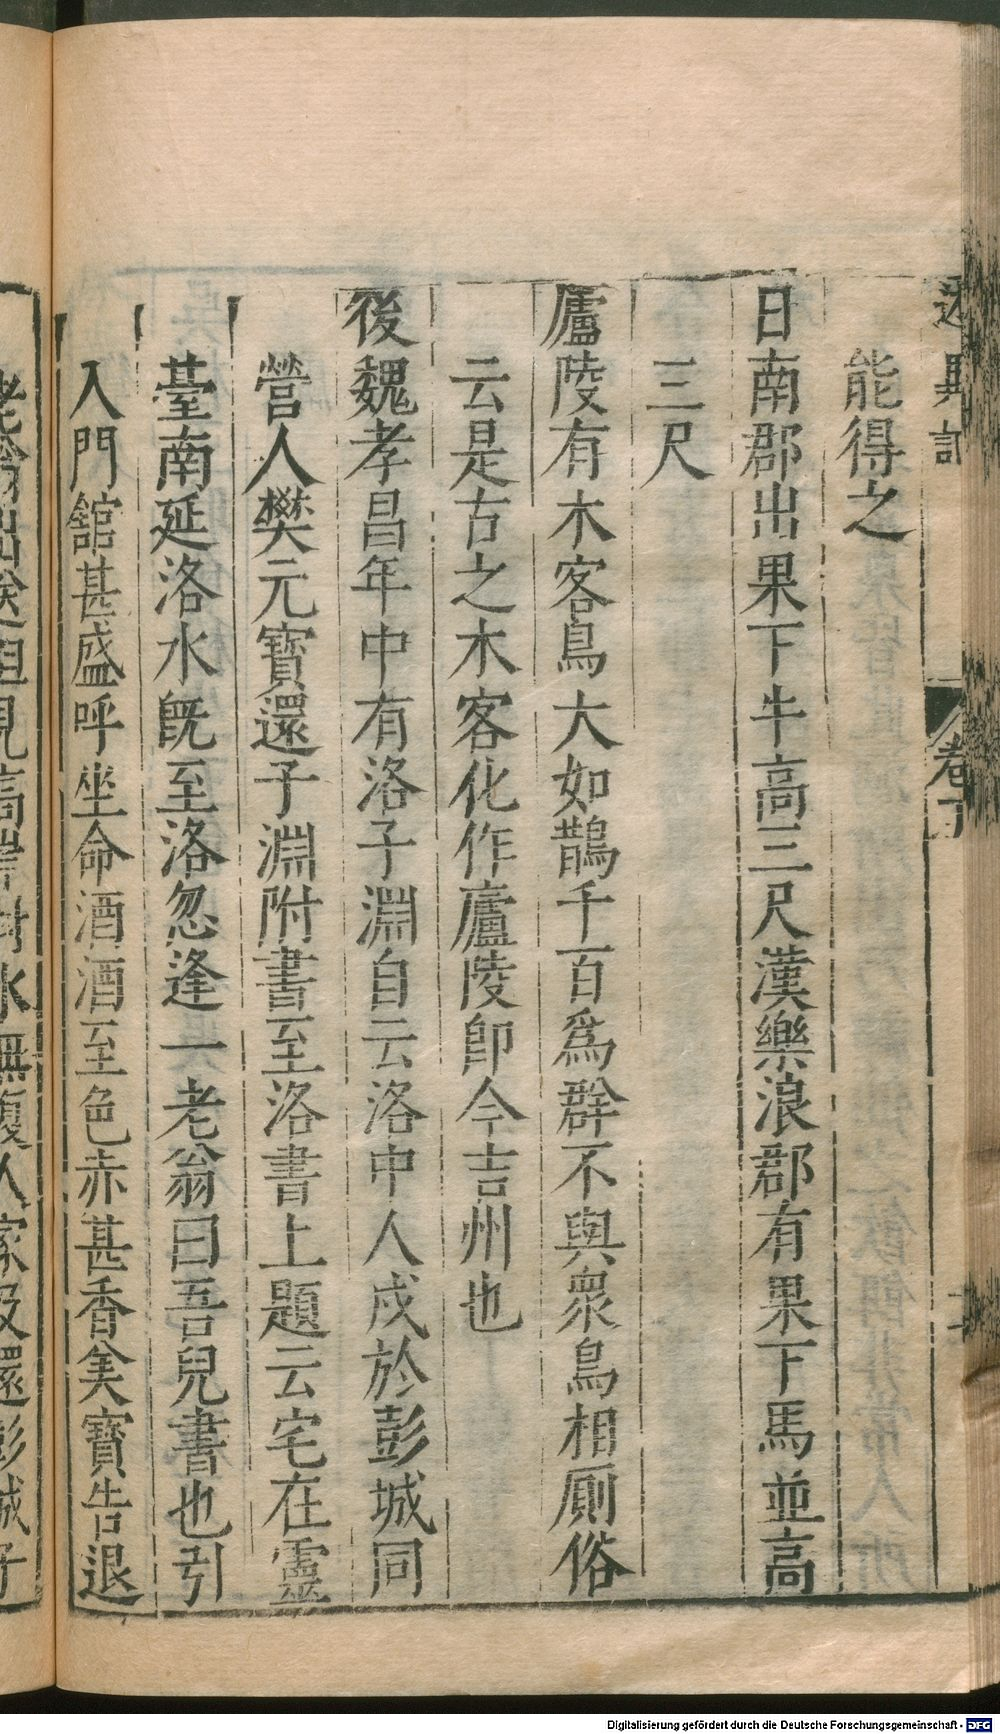 述異記 卷下
能得之
日南郡出果下牛高三尺漢樂浪郡有果下馬並高
三尺
廬陵有木客鳥大如鵲千百爲群不與衆鳥相厠俗
云是古之木客化作廬陵卽今吉州也
後魏孝昌年中有洛子淵自云洛中人戍於彭城同
營人樊元寶還子淵附書至洛書上題云宅在靈
臺南延洛水旣至洛忽逢一老翁曰吾兒書也引
入門館甚盛呼坐命酒酒至色赤甚香美寶告退
老翁出送但見高岸對水無復人家及還彭城子
Digitalisierung gefördert durch die Deutsche Forschungsgemeinschaft - DFG